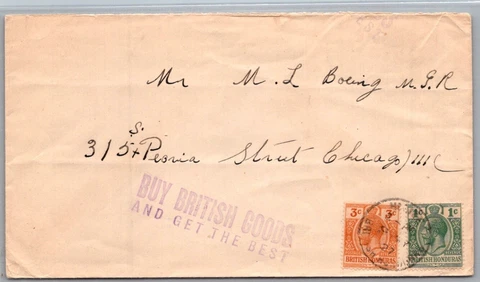 Mr M. L Boeing M.G.R
315 S. Peoria Street Chicago, Ill
BUY BRITISH GOODS
AND GET THE BEST
3c 3c
BRITISH HONDURAS
1c 1c
BRITISH HONDURAS